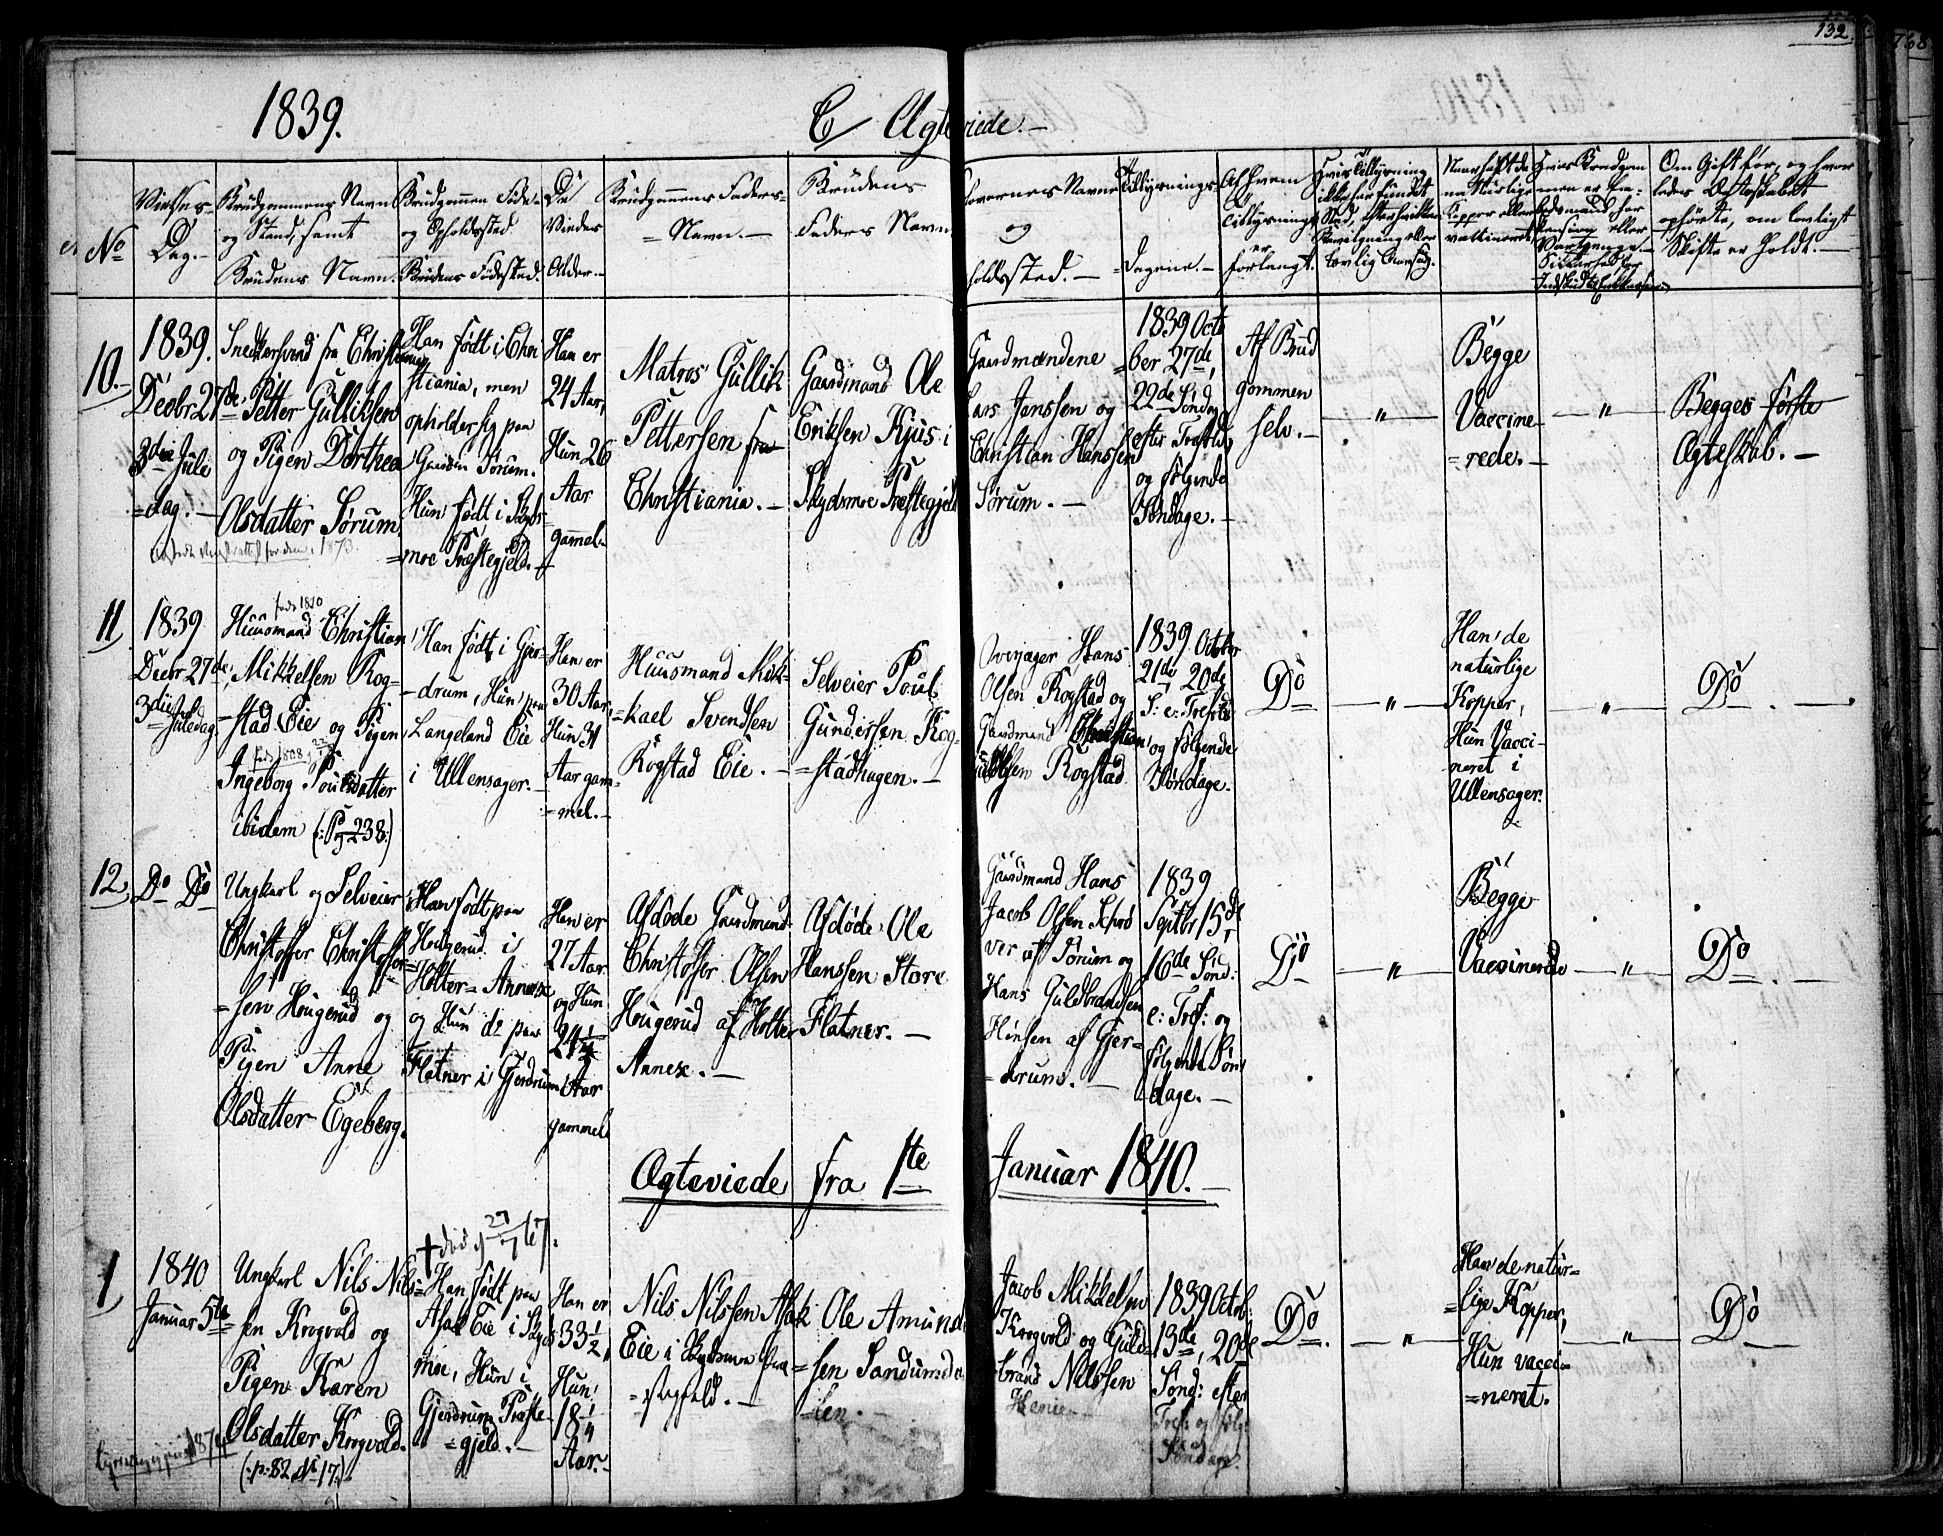 132.
1839.
C/ Ægteviede.
No
Vielses-
Dag.
Brudgommens Navn
og Stand, samt
Brudens Navn.
Brudgommen Føde-
og Opholdssted
Brudens Fødested.
De
Viedes
Alder.
Brudgommens Faders-
= Navn. —
Brudens
Faders Navn
Forlovernes Navne
og
holdssted. —
Tillysnings-
=dagene. —
Af Hvem
Tillysningen
er
forlangt.
Om Gift før, og hvor
ledes Ægteskabet
ophørte, om lovligt
Skifte er holdt. —
10. —
1839.
Decbr 27de
3die Jule
=dag. —
Snedkersvend fra Christiania
Petter Gulliksen
og Pigen Dorthea
Olsdatter Sørum.
1873.
Han født i Chri
stiania, men
opholder sig paa
Gaarden Sørum.
Hun født i Skyds
=moe Præstegjeld. —
Han er
24 Aar,
Hun 26
Aar
gammel.
Matros Gullik
Pettersen fra
Christiania. —
Gaardmand Ole
Eriksen Kjus i
Skydsmoe Præstegjeld
Gaardmændene
Lars Janssen og
Christian Hanssen
Sørum. —
1839 Octo
=ber 27de,
22de Søndag
efter Trefold:
og følgende
Søndage. —
Af Brud
gommen
selv. —
— " —
Begge
Vaccine
=rede. —
— " —
Begges første
Ægteskab. —
11,
1839
Decbr 27de,
3die Juledag
født 1810
Huusmand Christian
Mikkelsen Rog-
stad Eie og Pigen
født 1808
Ingeborg Poulsdatter
ibidem (: Pag 238:)
Han født i Gjer-
drum, Hun paa
Langeland Eie
i Ullensager. —
Han er
30 Aar,
Hun 31
Aar gam-
=mel. —
Huusmand Mik-
kael Svendsen
Rogstad Eie. —
Selveier Poul
Gundersen Rog-
=stadhagen. —
Hans
Olsen Rogstad og
Gaardmand Christian
Rogstad
1839 October
21de 20de
S: e: Trefold:
og følgende
Søndage.
Do
— " —
Han de
naturlige
Kopper,
Hun Vacci-
neret i
Ullensager.
"
Do. —
12,
Do Do
Ungkarl og Selveier
Christoffer Christoffer-
=sen Hougerud og
Pigen Anne
Olsdatter Egeberg.
Han født paa
Hougerud i
Holter- Annex
og Hun do paa
Flatner i Gjerdrum
Han er
27 Aar
og Hun
24 1/4
Aar
gammel
Afdøde Gaardmand
Christoffer Olsen
Hougerud af Holter
Annex. —
Afdøde Ole
Hanssen Store
Flatner. —
Gaardmand Hans
Jacob Olsen
af Sørum og
Hans Guldbrandsen
af Gjer-
=drum. —
1839
Septbr 15de,
16de Sønd:
e: Tref: og
følgende Søn
dage. —
Do
— " —
Begge
Vaccinerede
— " —
Do. —
Ægteviede fra 1ste Januar 1840. —
1,
1840
Januar 5te
Ungkarl Nils Nils-
sen Krogvold og
Pigen Karen
Olsdatter Krogvold.
(: p. 82 No 17:).
1874
† død 27/7 67.
Han født paa
Asak Eie i Skyds
moe, Hun i
Gjerdrum Præste-
=gjeld. —
Han er
33 1/2,
Hun
18 1/4
Aar. —
Nils Nilssen Asak
Eie i Skydsmoe Præ-
=stegjeld. —
Ole Amund
=sen Sandumsda
=len. —
Jacob Mikkelsen
Krogvold og Guld-
brand Nilssen
1839 Octob:
13de, 20de
Sønd: efter
Tref: og følg:
Søndage.
Do.
— " —
Han de natur-
=lige Kopper,
Hun vacci-
=neret.
— " —
Do